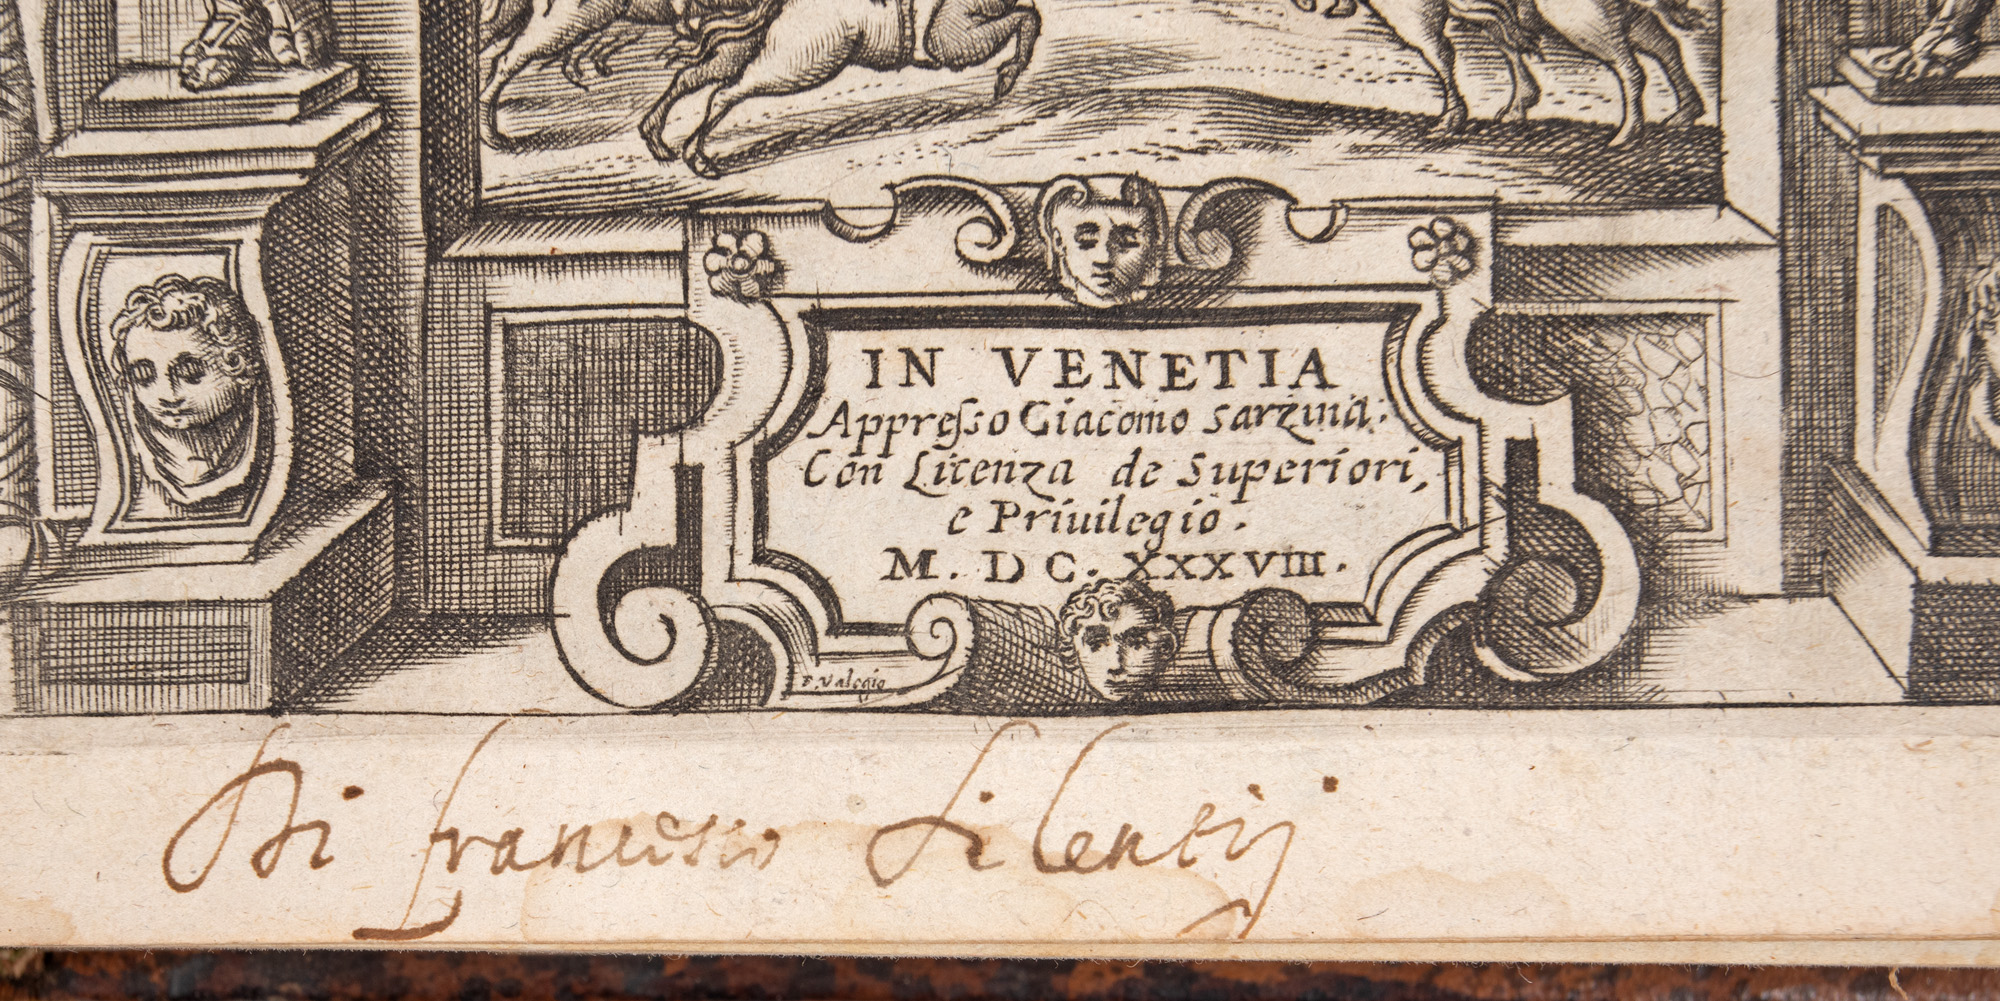 IN VENETIA
Appreſso Giacomo Sarzina.
Con Licenza de Superiori,
e Priuilegio.
M. DC. XXXVIII.
F. Valegio
Di francesco Silentij